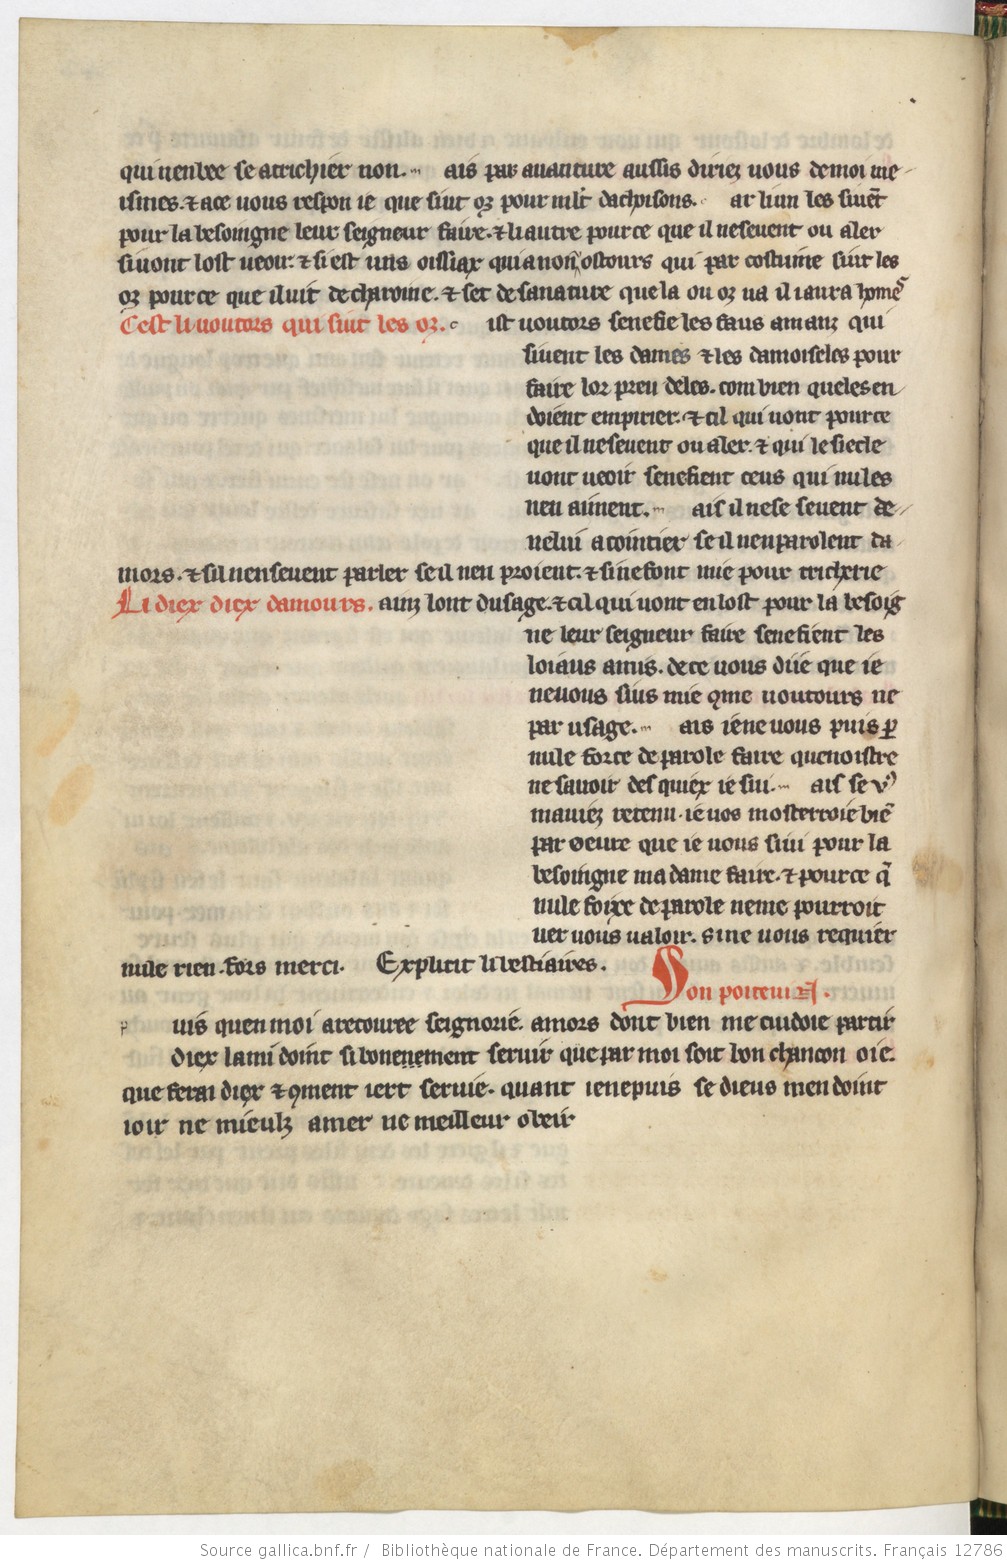 qui nenbee se a trichier non. ais par auanture aussis diriez uous de moi me
ismes. ⁊ a ce uous respon ie que siut oꝫ pour mlt̃ dachoisons. ar li un les siuẽt
pour la besoingne leur seigneur faire. ⁊ li autre pour ce que il ne seuent ou aler
si uont lost ueoir. ⁊ si est uns oissiax qui a non ostours qui par costume siut les
oꝫ pour ce que il uit de charoine. ⁊ set de sa nature que la ou oꝫ ua il i aura hom̃es
Cest li uoutors qui siut les oꝫ. ist uoutors senefie les faus amanz qui
siuent les dames ⁊ les damoiseles pour
faire lor preu deles. combien queles en
doient empirier. ⁊ cil qui uont pour ce
que il ne seuent ou aler. ⁊ qui le siecle
uont ueoir senefient ceus qui nules
neu aiment. ais il ne se seuent de
nelui acointier se il neu parolent da
mors. ⁊ sil uen seuent parler se il neu proient. ⁊ si ne font mie pour tricherie
Li diex diex damours. ainz lont dusage. ⁊ cil qui uont en lost pour la besoig
ne leur seigneur faire senefient les
loiaus amis. de ce uous diie que ie
ne uous suis mie ꝯme uoutours ne
par usage. ais ie ne uous puis ꝑ
nule force de parole faire quenoistre
ne sauoir des quiex ie sui. ais se v᷒
mauiez retenu. ie uos mosterroie biẽ
par oeure que ie uous siui pour la
besoingne ma dame faire. ⁊ pour ce q̃
nule foixe de parole ne me pourroit
uer uous ualoir. si ne uous requier
nule rien. fors merci. Explicit li bestiaires.
Son poiteuin.
p uis quen moi a recouree seignorie. amors dont bien me cuidoie partir
diex la mi doint si bonenement seruir que par moi soit bon chancon oie.
que ferai diex ⁊ ꝯment iert seruie. quant ie ne puis se dieus men doint
ioir ne mieulz amer ne meilleur obeir
Source gallica.bnf.fr / Bibliothèque nationale de France. Département des manuscrits. Français 12786